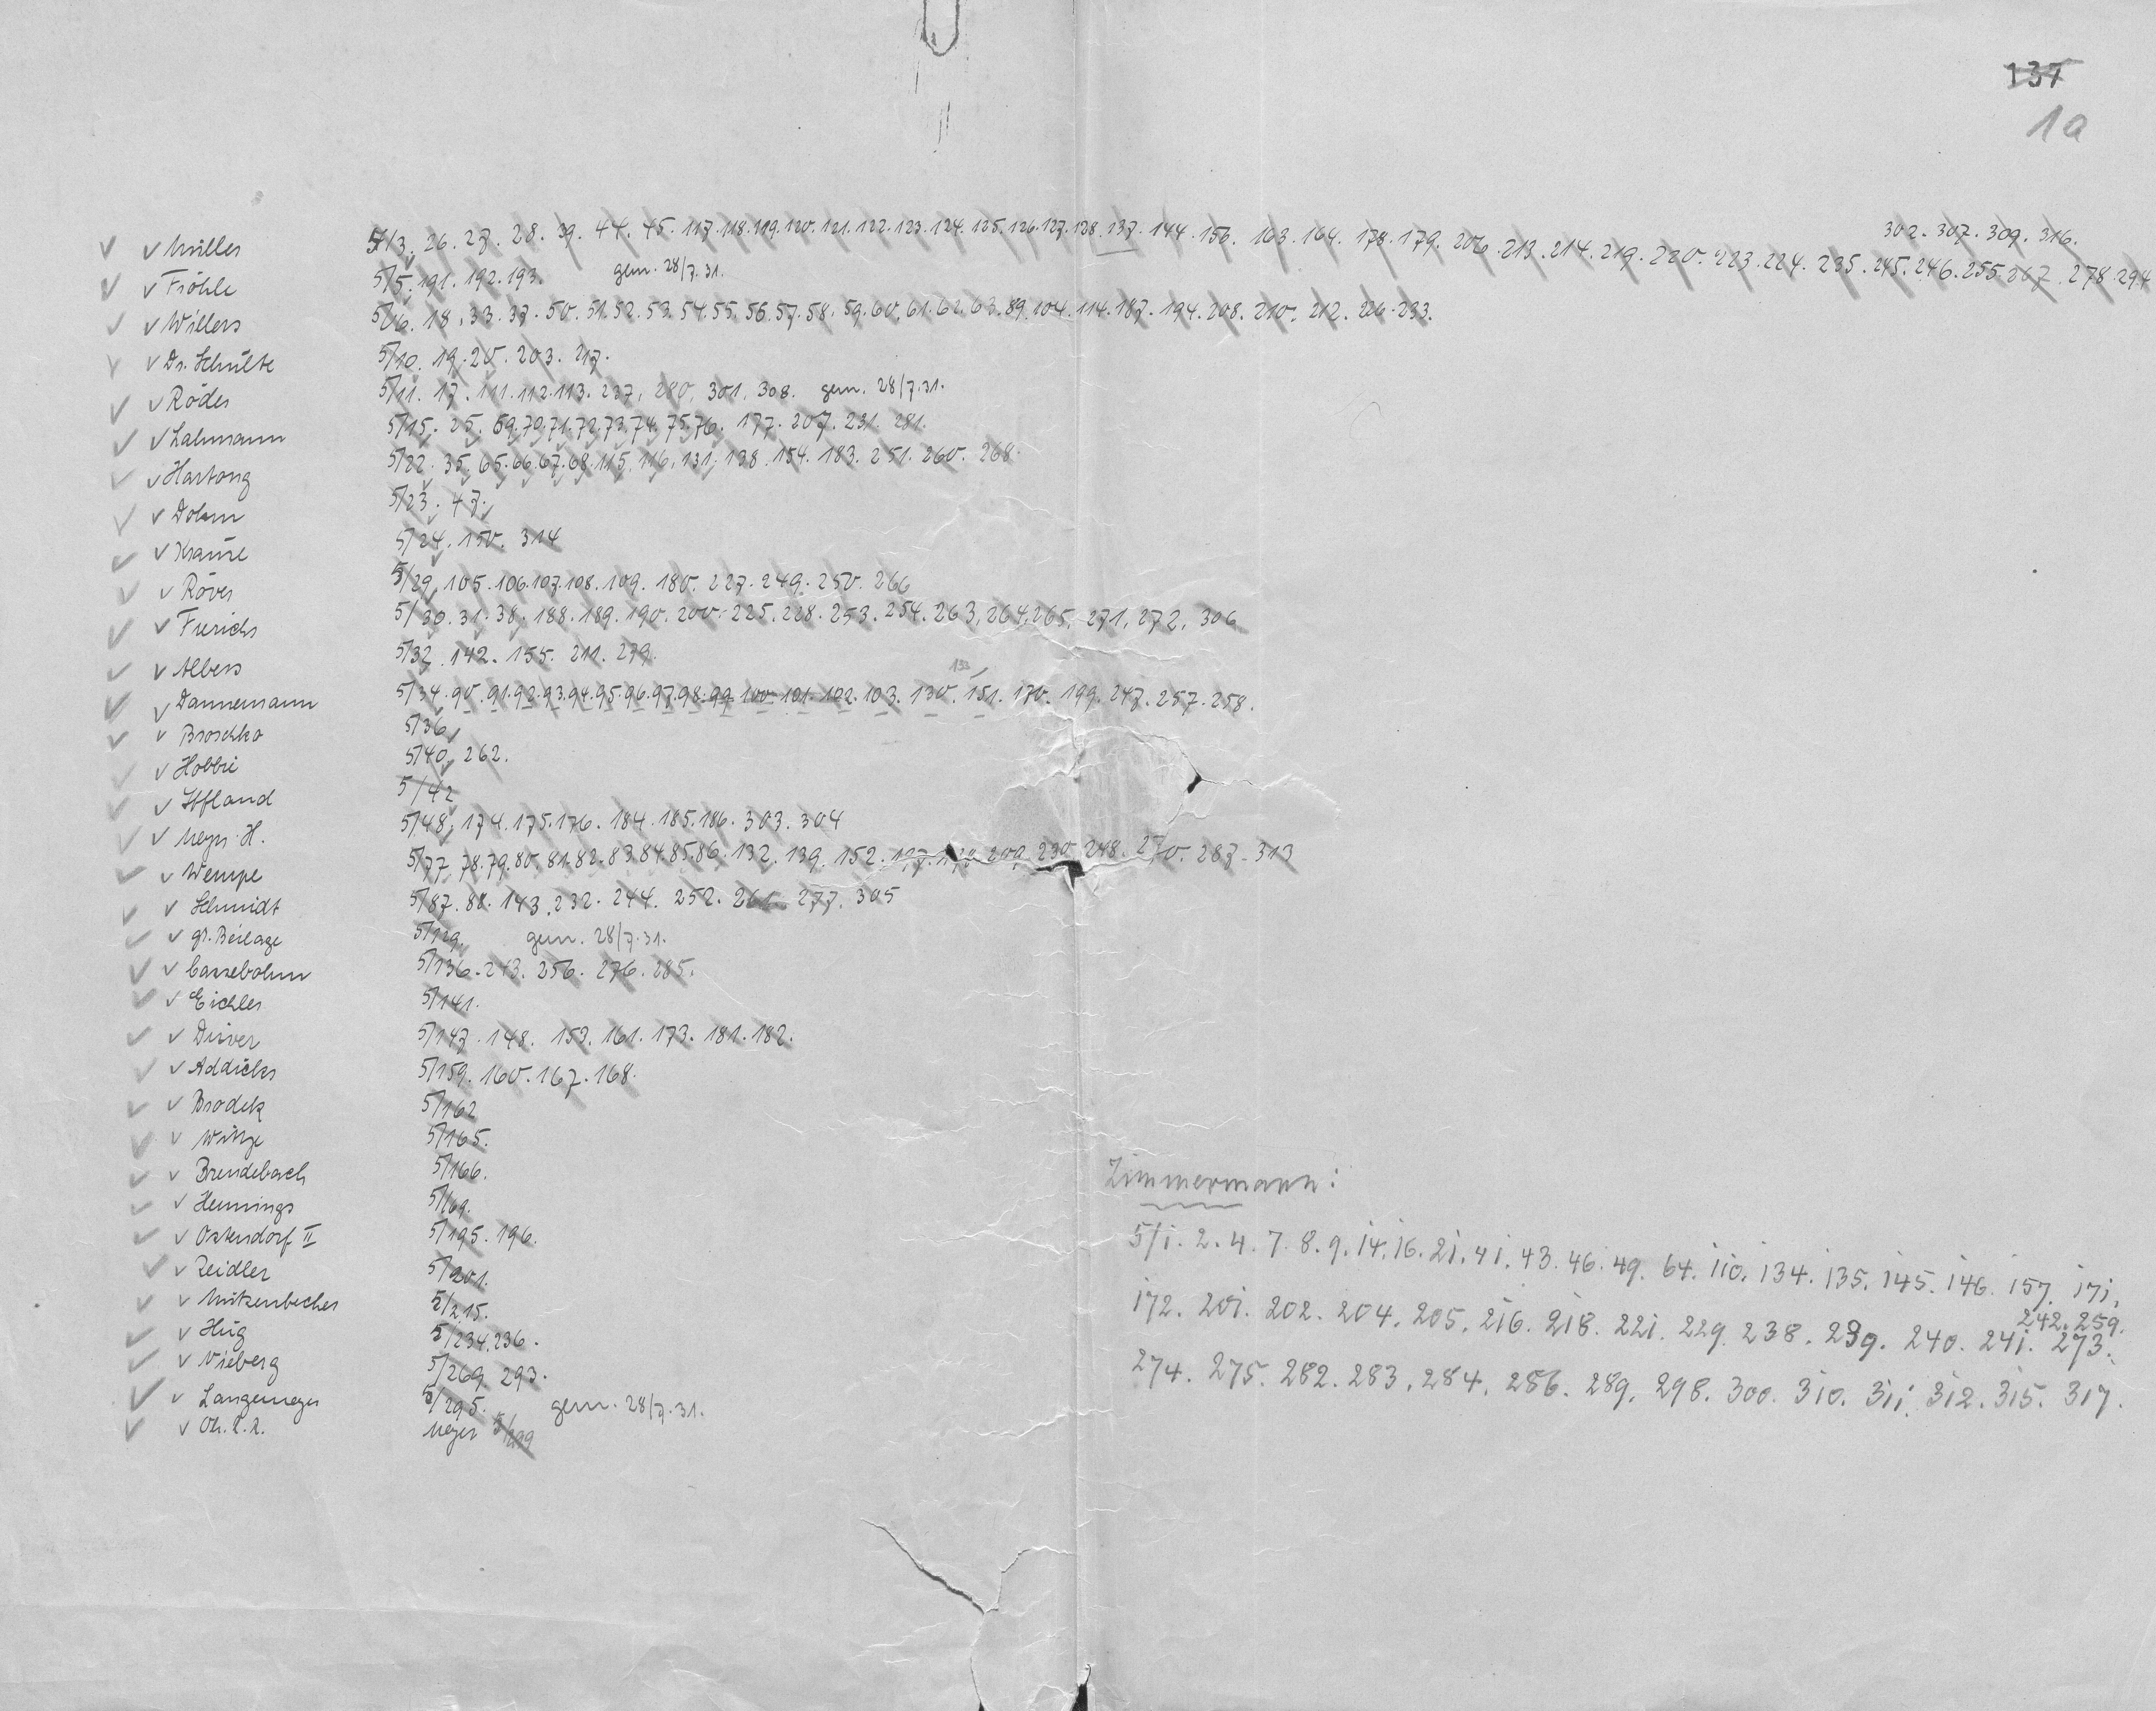 137
1a
302. 307. 309. 316.
Müller 5/3. 26. 27. 28. 39. 44. 45. 117. 118. 119. 120. 121. 122. 123. 124. 125. 126. 127. 128. 137. 144. 156. 163. 164. 178. 179. 206. 213. 214. 219. 220. 223. 224. 235. 245. 246. 255. 267. 278. 294
Fröhle 5/5. 191. 192. 193. gem. 28/7.31.
Willers 5/6. 18. 33. 37. 50. 51. 52. 53. 54. 55. 56. 57. 58. 59. 60. 61. 62. 63. 89. 104. 114. 187. 194. 208. 210. 212. 226. 233.
Dr. Schulte 5/10. 19. 20. 203. 217.
Röder 5/11. 17. 111. 112. 113. 237, 280, 301, 308. gem. 28/7.31.
Lahmann 5/15. 25. 69. 70. 71. 72. 73. 74. 75. 76. 177. 207. 231. 281.
Hartong 5/22. 35. 65. 66. 67. 68. 115. 116. 131. 138. 154. 183. 251. 260. 268.
Dohm 5/23. 47.
Krause 5/24. 150. 314
Röver 5/29. 105. 106. 107. 108. 109. 180. 227. 249. 250. 266
Frerichs 5/30. 31. 38. 188. 189. 190. 200. 225. 228. 253. 254. 263, 264, 265, 271, 272, 306
Albers 5/32. 142. 155. 211. 279.
133
Dannemann 5/34. 90. 91. 92. 93. 94. 95. 96. 97. 98. 99. 100. 101. 102. 103. 130. 151. 170. 199. 247. 257. 258.
Broschko 5/36
Hobbie 5/40. 262.
Iffland 5/42
Meyer H. 5/48, 174. 175. 176. 184. 185. 186. 303. 304
Wempe 5/77. 78. 79. 80. 81. 82. 83. 84. 85. 86. 132. 139. 152. 209. 230. 248. 270. 287. 313
Schmidt 5/87. 88. 143. 232. 244. 252. 261. 277. 305
gr. Beilage 5/129. gem. 28/7.31.
Cassebohm 5/136. 243. 256. 276. 285.
Eichler 5/141.
Düver 5/147. 148. 153. 161. 173. 181. 182.
Addicks 5/159. 160. 167. 168.
Brodek 5/162
Witze 5/165.
Brendebach 5/166.
Hennings 5/169.
Ostendorf II 5/195. 196.
Zeidler 5/201.
Mutzenbecher 5/215.
Hug 5/234. 236.
Vieberg 5/269. 293.
Langemeyer 5/295. gem. 28/7.31.
Ob. R. R. Meyer 5/299
Zimmermann:
5/1. 2. 4. 7. 8. 9. 14. 16. 21. 41. 43. 46. 49. 64. 110. 134. 135. 145. 146. 157. 171.
172. 201. 202. 204. 205. 216. 218. 221. 229. 238. 239. 240. 241. 242. 259. 273.
274. 275. 282. 283. 284. 286. 289. 298. 300. 310. 311. 312. 315. 317.